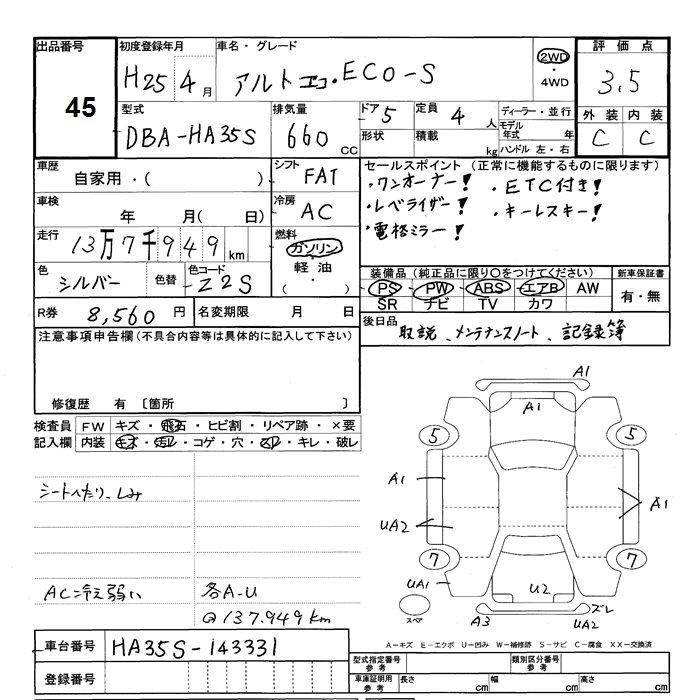 出品番号 45
初度登録年月 H25年4月
車名・グレード アルトエコ・ECO-S
2WD ・ 4WD
評価点 3.5
外装 C 内装 C
型式 DBA-HA35S
排気量 660 CC
ドア 5 形状
定員 4人 積載 kg
ディーラー・並行
モデル年式 年
ハンドル 左・右
車歴 自家用・( )
シフト FAT
車検 年 月(日)
冷房 AC
走行 13万7千949km
燃料 ガソリン 軽油 ・( )
色 シルバー 色替 色コード Z2S
R券 8,560円
名変期限 月 日
セールスポイント (正常に機能するものに限ります)
・ワンオーナー! ・ETC付き!
・レベライザー! ・キーレスキー!
・電格ミラー!
装備品(純正品に限り○をつけてください)
PS PW ABS エアB AW
SR ナビ TV カワ
新車保証書 有・無
後日品 取説、メンテナンスノート、記録簿
注意事項申告欄(不具合内容等は具体的に記入して下さい)
修復歴 有 〔箇所 〕
検査員記入欄
FW キズ・飛石・ヒビ割・リペア跡・×要
内装 キズ・汚レ・コゲ・穴・スレ・キレ・破レ
シートへたり、しみ
AC冷え弱い
各A-U
@137.949km
A1
A1
5 5
A1
A1
UA2
7 7
UA1
U2
スペア
A3
ズレ
UA2
A-キズ E-エクボ U-凹み W-補修跡 S-サビ C-腐食 XX-交換済
車台番号 HA35S-143331
登録番号
型式指定番号 参考
類別区分番号 参考
車庫証明用 参考 長さ cm 幅 cm 高さ cm